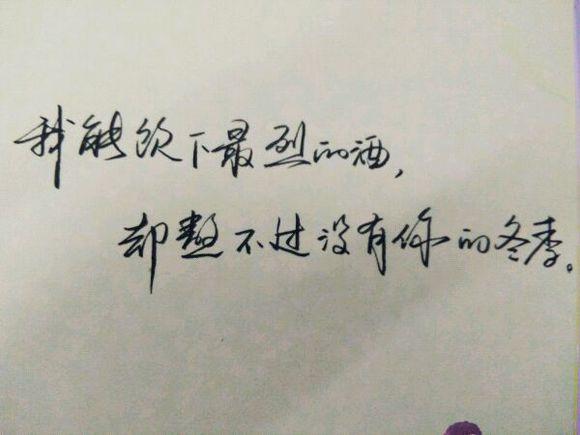 我能饮下最烈的酒,
却熬不过没有你的冬季。